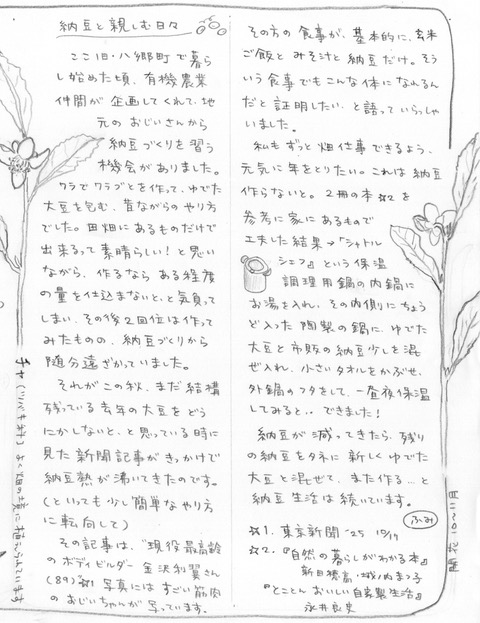 納豆と親しむ日々
ここ旧・八郷町で暮ら
し始めた頃、有機農業
仲間が企画してくれて、地
元のおじいさんから
納豆づくりを習う
機会がありました。
ワラでワラづとを作って、ゆでた
大豆を包む、昔ながらのやり方
でした。田畑にあるものだけで
出来るって素晴らしい!と思い
ながら、作るならある程度
の量を仕込まないと、と気負って
しまい、その後2回位は作って
みたものの、納豆づくりから
随分遠ざかっていました。
それがこの秋、まだ結構
残っている去年の大豆をどう
にかしないと、と思っている時に
見た新聞記事がきっかけで
納豆熱が沸いてきたのです。
(といっても少し簡単なやり方
に転向して)
その記事は、"現役最高齢
のボディビルダー 金沢利翼さん
(89)☆1 写真にはすごい筋肉
のおじいちゃんが写っています。
その方の食事が、基本的に、玄米
ご飯とみそ汁と納豆だけ。そう
いう食事でもこんな体になれるん
だと証明したい、と語っていらっしゃ
いました。
私もずっと畑仕事できるよう、
元気に年をとりたい。これは納豆
作らないと。2冊の本☆2を
参考に家にあるもので
工夫した結果→『シャトル
シェフ』という保温
調理用鍋の内鍋に
お湯を入れ、その内側にちょう
ど入った陶製の鍋に、ゆでた
大豆と市販の納豆少しを混
ぜ入れ、小さいタオルをかぶせ、
外鍋のフタをして、一昼夜保温
してみると‥できました!
納豆が減ってきたら、残り
の納豆をタネに新しくゆでた
大豆と混ぜて、また作る…と
納豆生活は続いています。
ふみ
☆1. 東京新聞 '25 10/19
☆2.『自然の暮らしがわかる本』
新田穂高・城ノ内まつ子
『とことん おいしい自家製生活』
永井良史
チャ(ツバキ科) よく畑の境に植えられています
花期 10〜12月